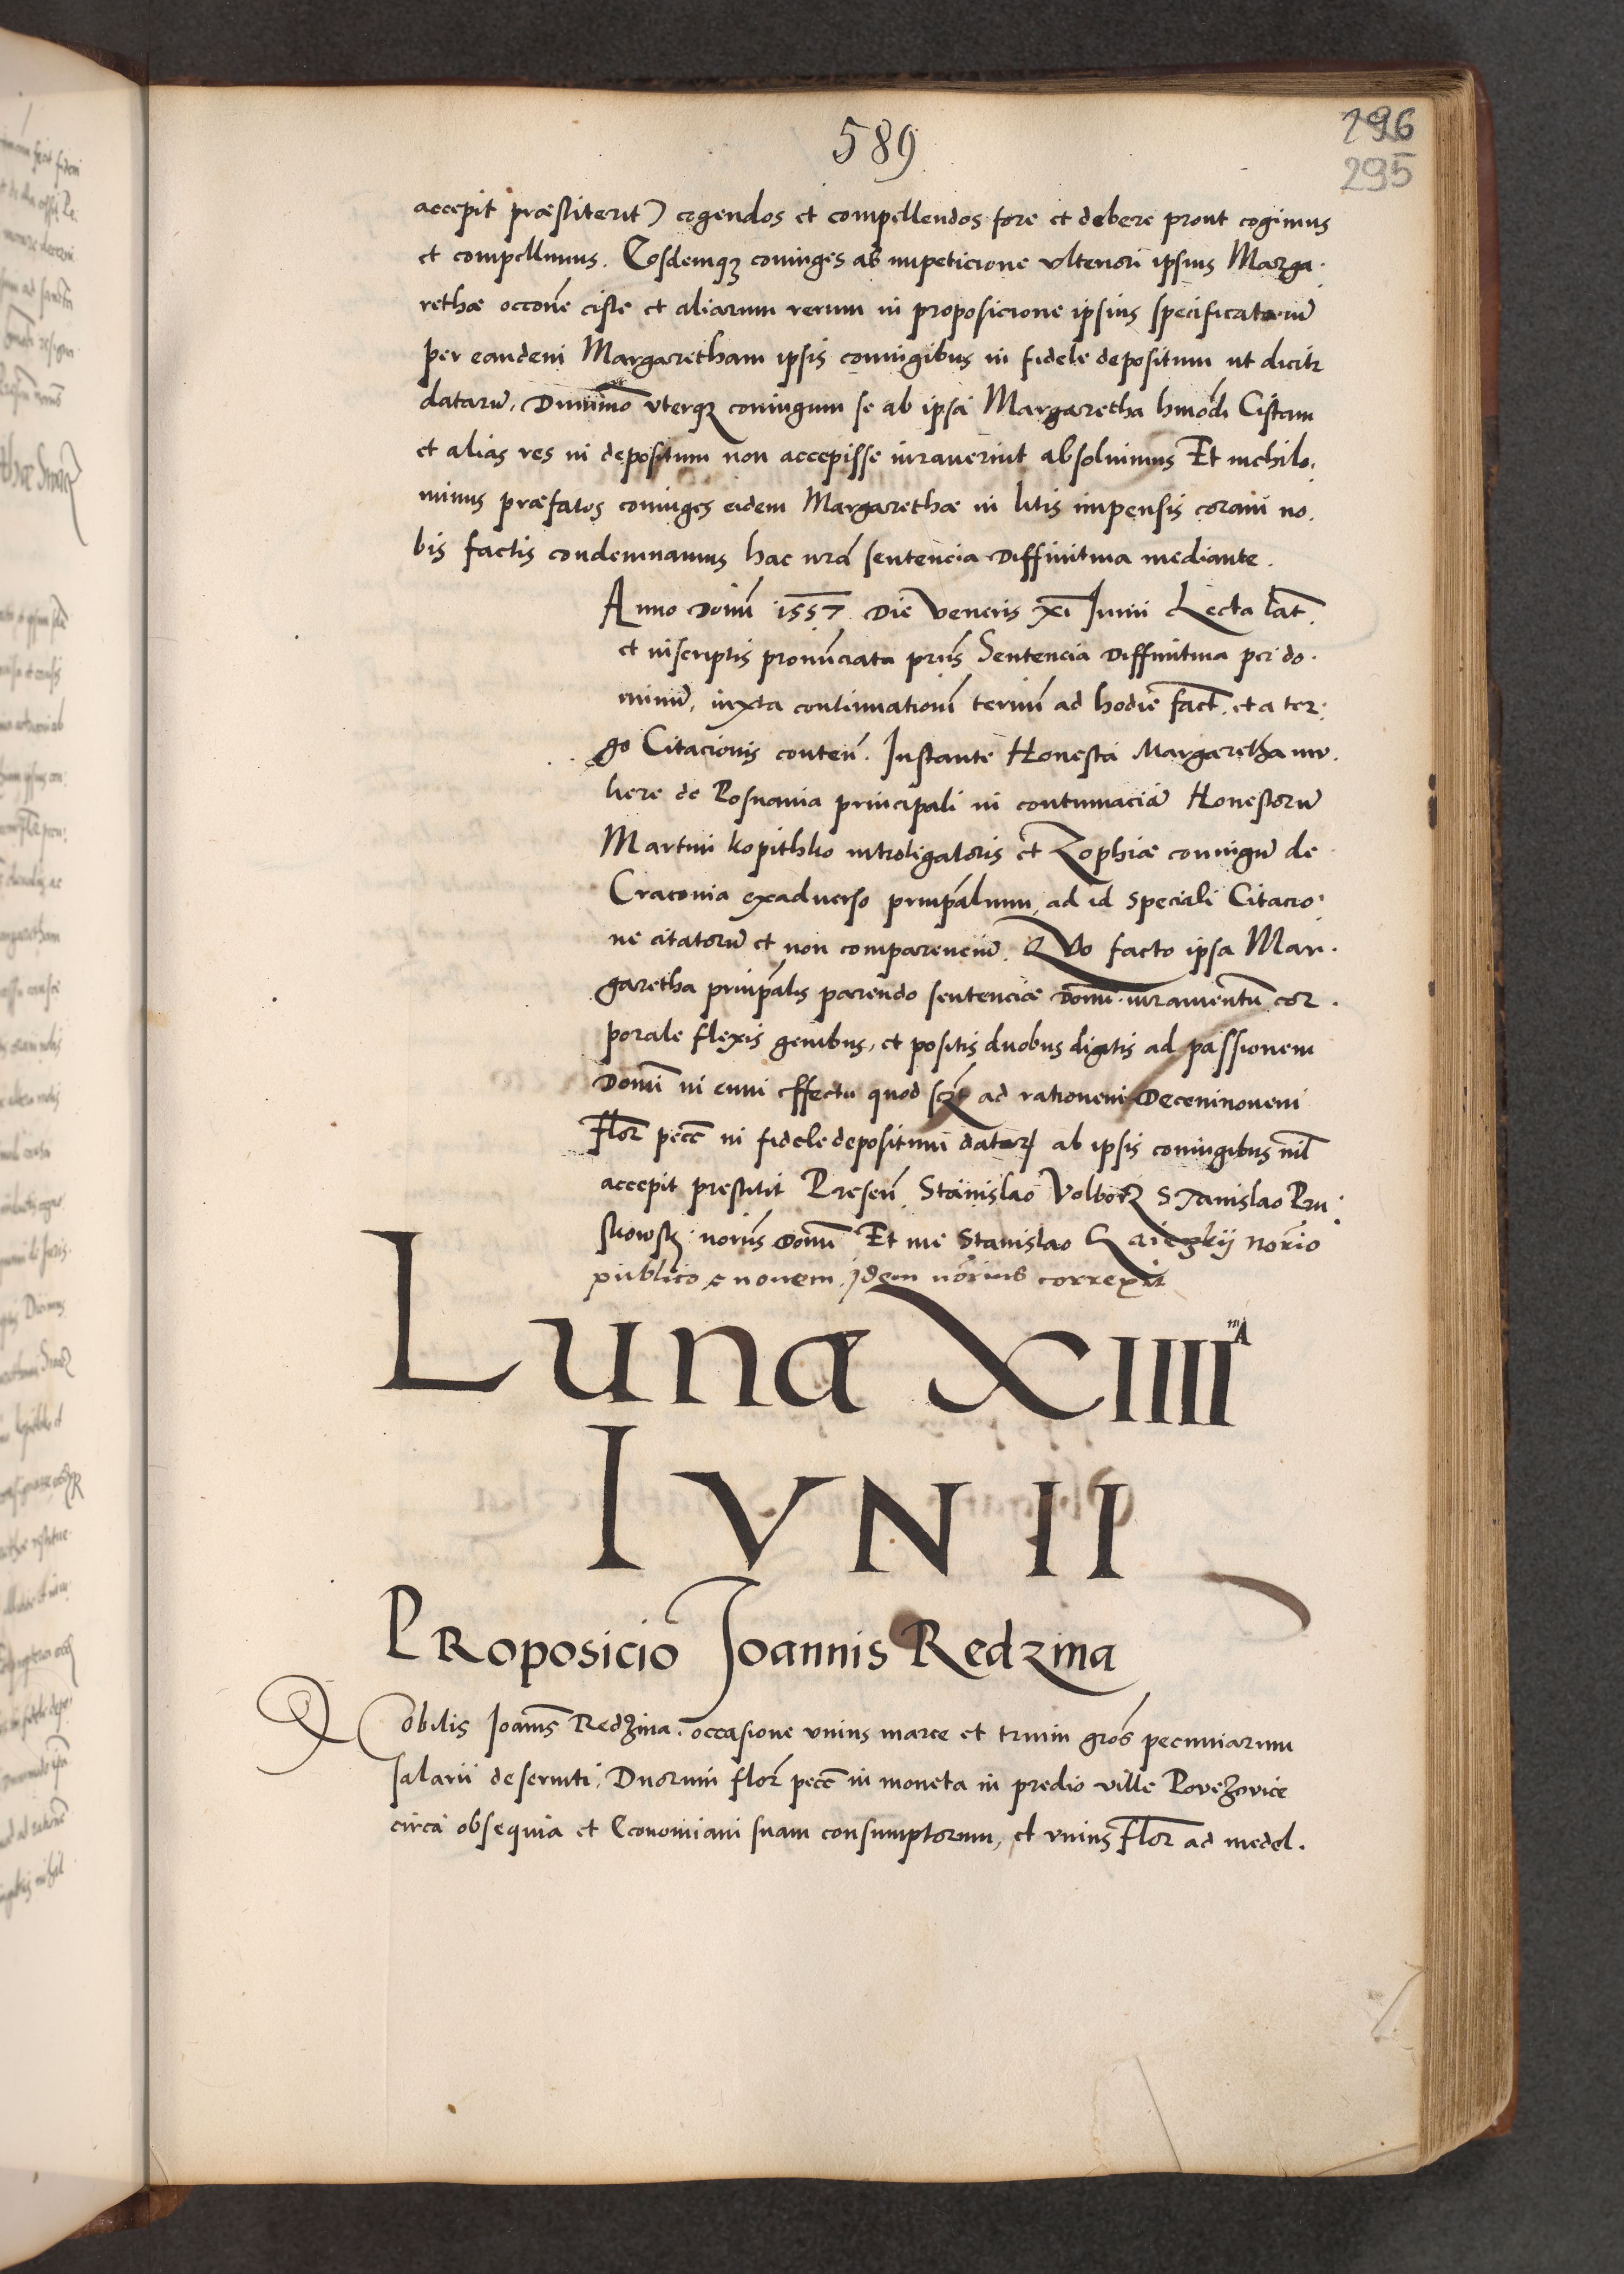 589
296
295
accepit præstiterit) cogendos et compellendos fore et debere prout cogimus
et compellimus. Eosdemq3 coniuges ab impeticione vlteriori ipsius Marga·
rethæ occone ciste et aliarum rerum in proposicione ipsius specificatarū
per eandem Margaretham ipsis coniugibus in fidele depositum ut dicitr
datarū, Dummō vterq3 coniugum se ab ipsa Margaretha hmōdi Cistam
et alias res in depositum non accepisse iuraverint absolvimus Et nichilo·
minus præfatos coniuges eidem Margarethæ in litis impensis coram no·
bis factis condemnamus hac nrā sentencia Diffinitiva mediante.
Anno Domī 1557 Die Veneris xi Junii Lecta lat
et inscriptis pronūciata prīs Sentencia Diffinitiva per do·
minū, iuxta continuationē termī ad hodiē fact. et a ter·
go Citacionis conteñ. Instante Honesta Margaretha mu·
liere de Posnania principali in contumaciā Honestorū
Martini kopithko introligatoris et Zophiæ coniugū de
Cracovia exadverso prinpālium, ad id speciali Citacio·
ne citatorū et non comparenciū. Quo facto ipsa Mar·
garetha prinpālis parendo sentenciæ Domī iuramentū cor·
porale flexis genibus, et positis duobus digitis ad passionem
Domī in eum effectū quod ad rationem Decemnovem
Flor pecc in fidele depositum datorꝝ ab ipsis coniugibus nil
accepit prestitit Preseñ Stanislao Volborz Stanislao Pru·
skowsky noriis Domī Et me Stanislao norio
publico novem idem norius correxit
Luna XIIII mA
IVNII
Proposicio Joannis Redzina
Nobilis Joanīs Redzina occasione vnius marce et trium gros pecuniarum
salarii deserviti, Duorum flor pecc in moneta in predio ville Povezovice
circa obsequia et Economiam suam consumptorum, et vnius flor ad medel·